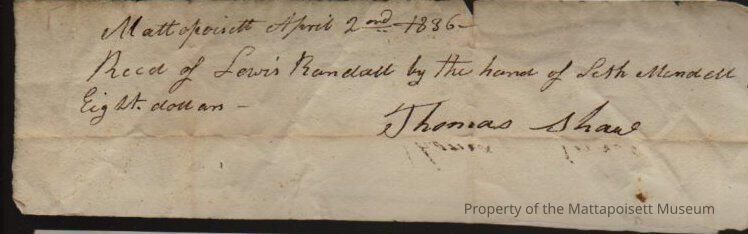 Mattapoisett April 2nd 1836-
Recd of Lewis Randall by the hand of Seth Mendell
Eight dollars -
Thomas Shaw
Property of the Mattapoisett Museum